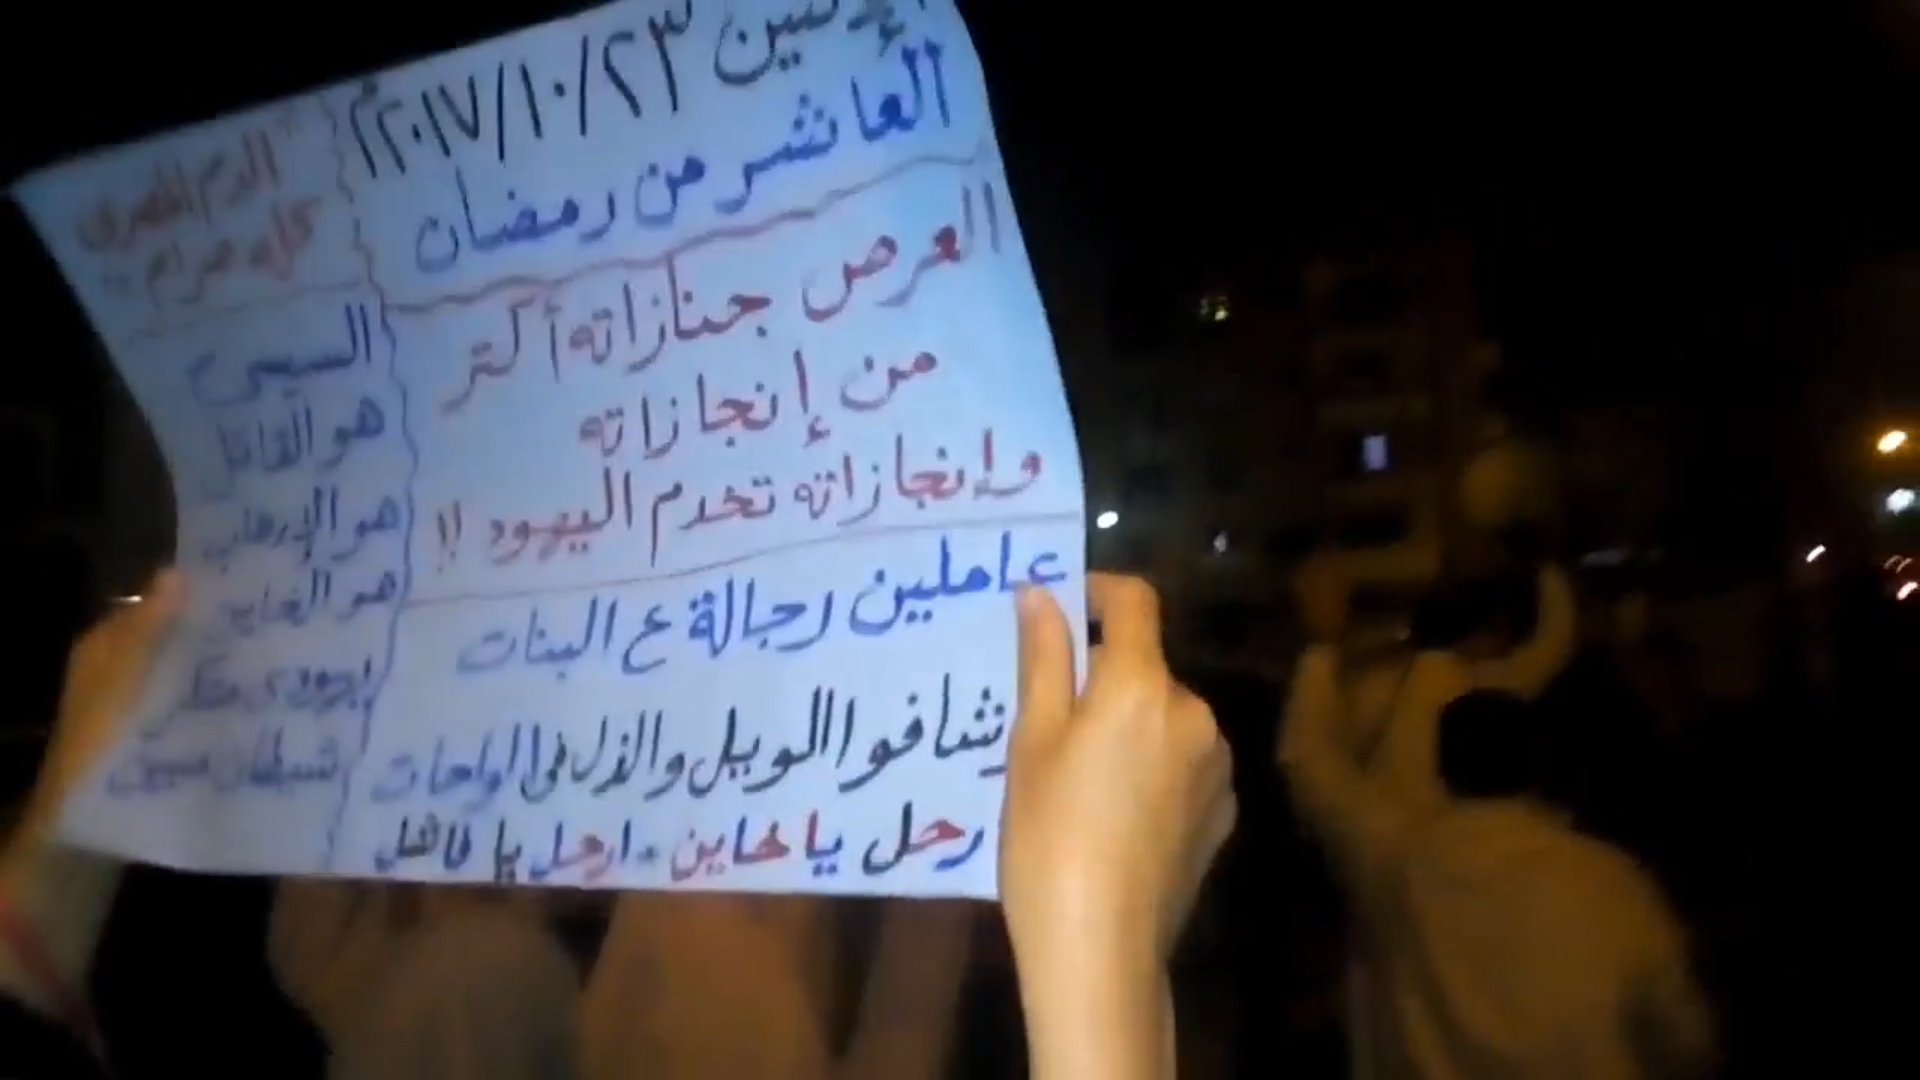 الإثنين ٢٠١٧/١٠/٢٣م
العاشر من رمضان
العرص جنازاته أكتر
من إنجازاته
وإنجازاته تخدم اليهود !!
عاملين رجالة ع البنات
وشافوا الويل والذل في الواحات
رحل يا خاين - ارحل يا فاشل
"الدم المصري
كله حرام"
السيسي
هو القاتل
هو الإرهاب
هو الخاين